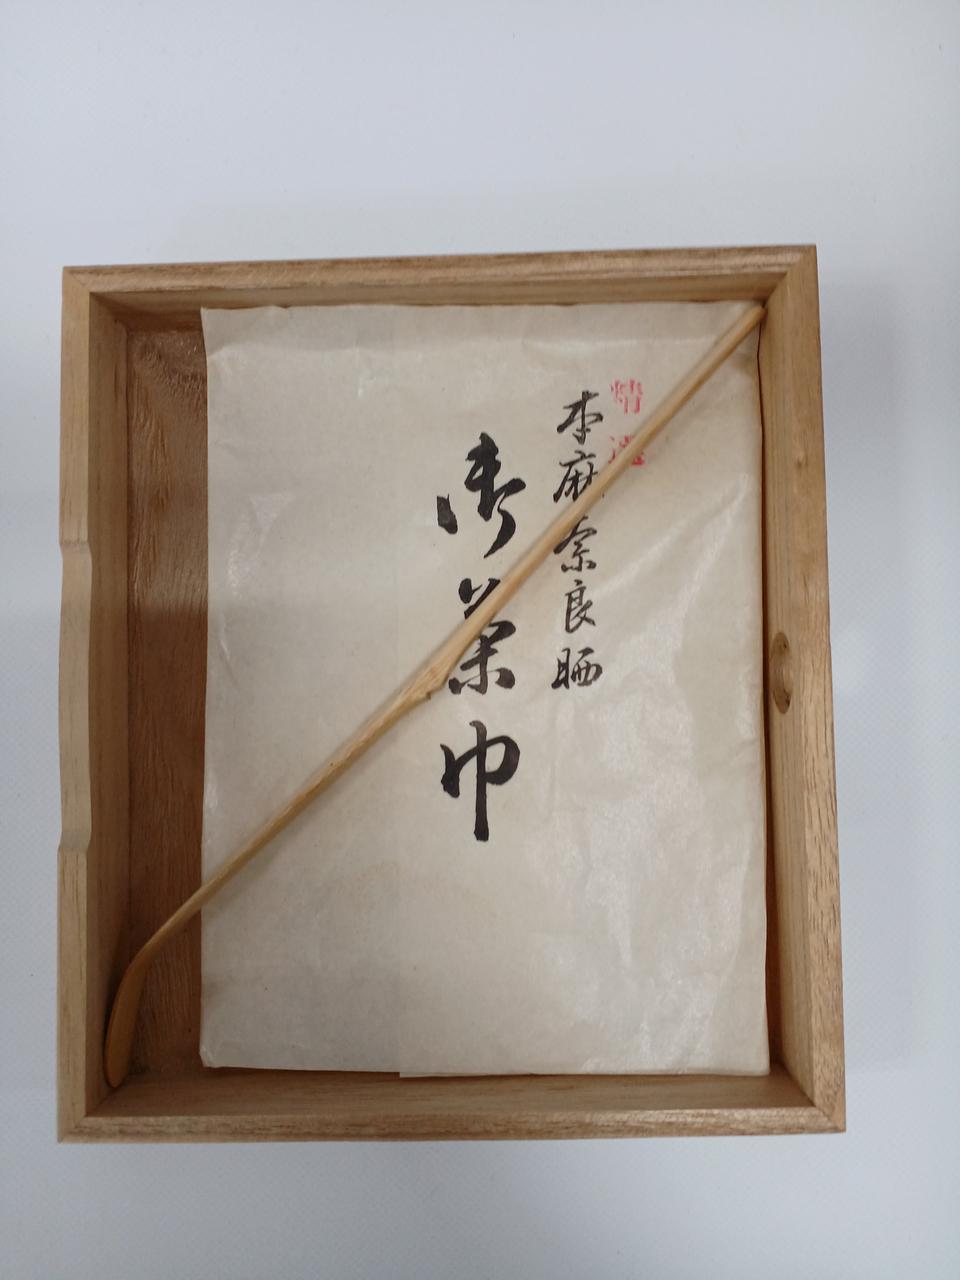 精選
本麻奈良晒
御茶巾